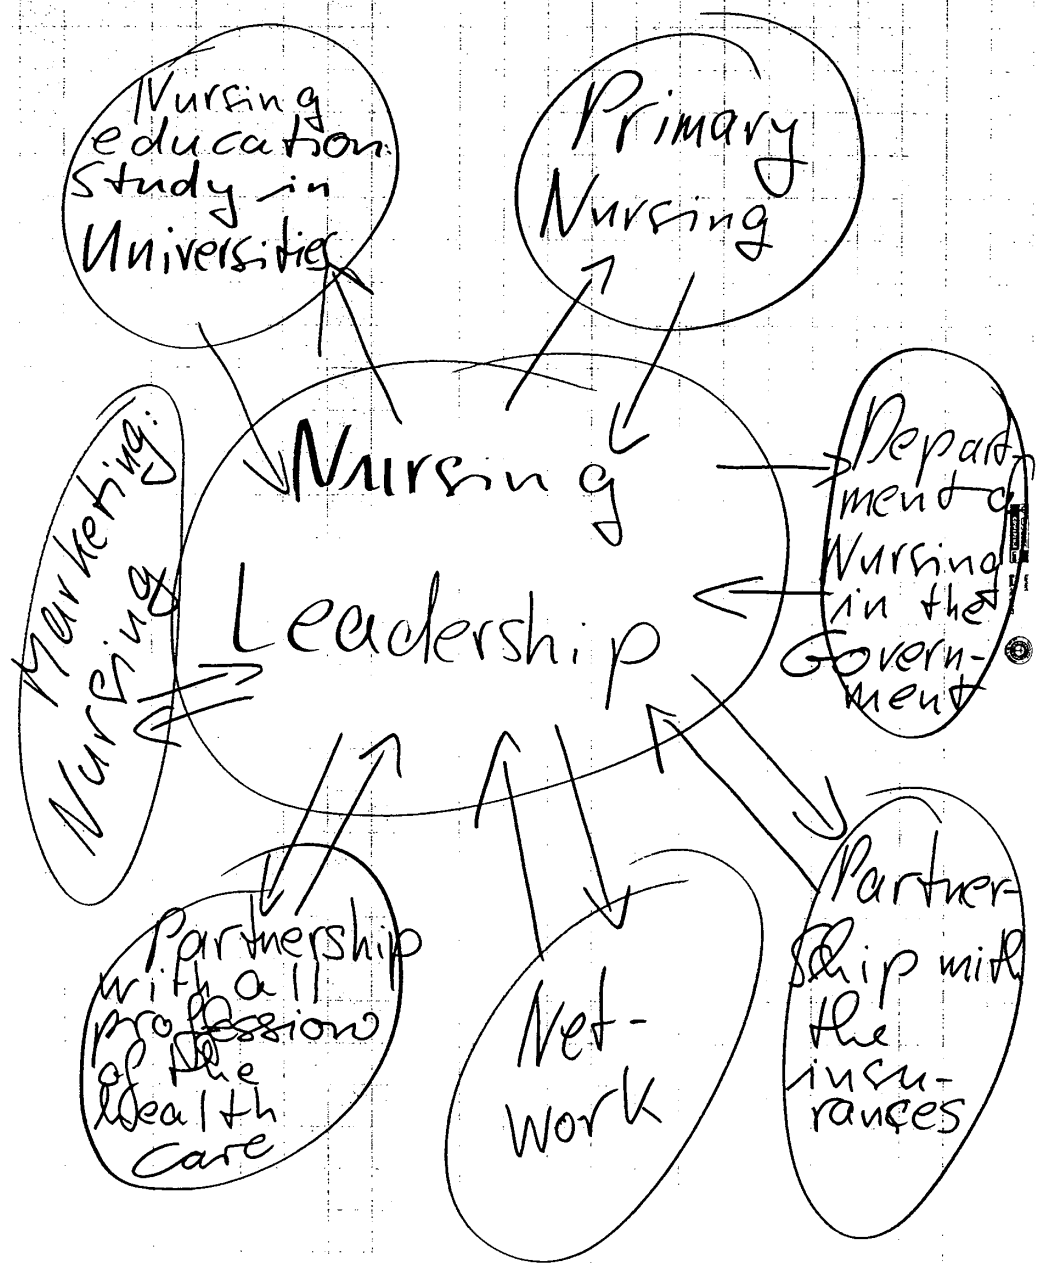 Nursing
education:
Study in
Universities
Primary
Nursing
Nursing
Leadership
Depart-
ment of
Nursing
in the
Govern-
ment
Marketing:
Nursing
Partnership
with all
profession
of the
Health
care
Net-
work
Partner-
Ship with
the
insu-
rances